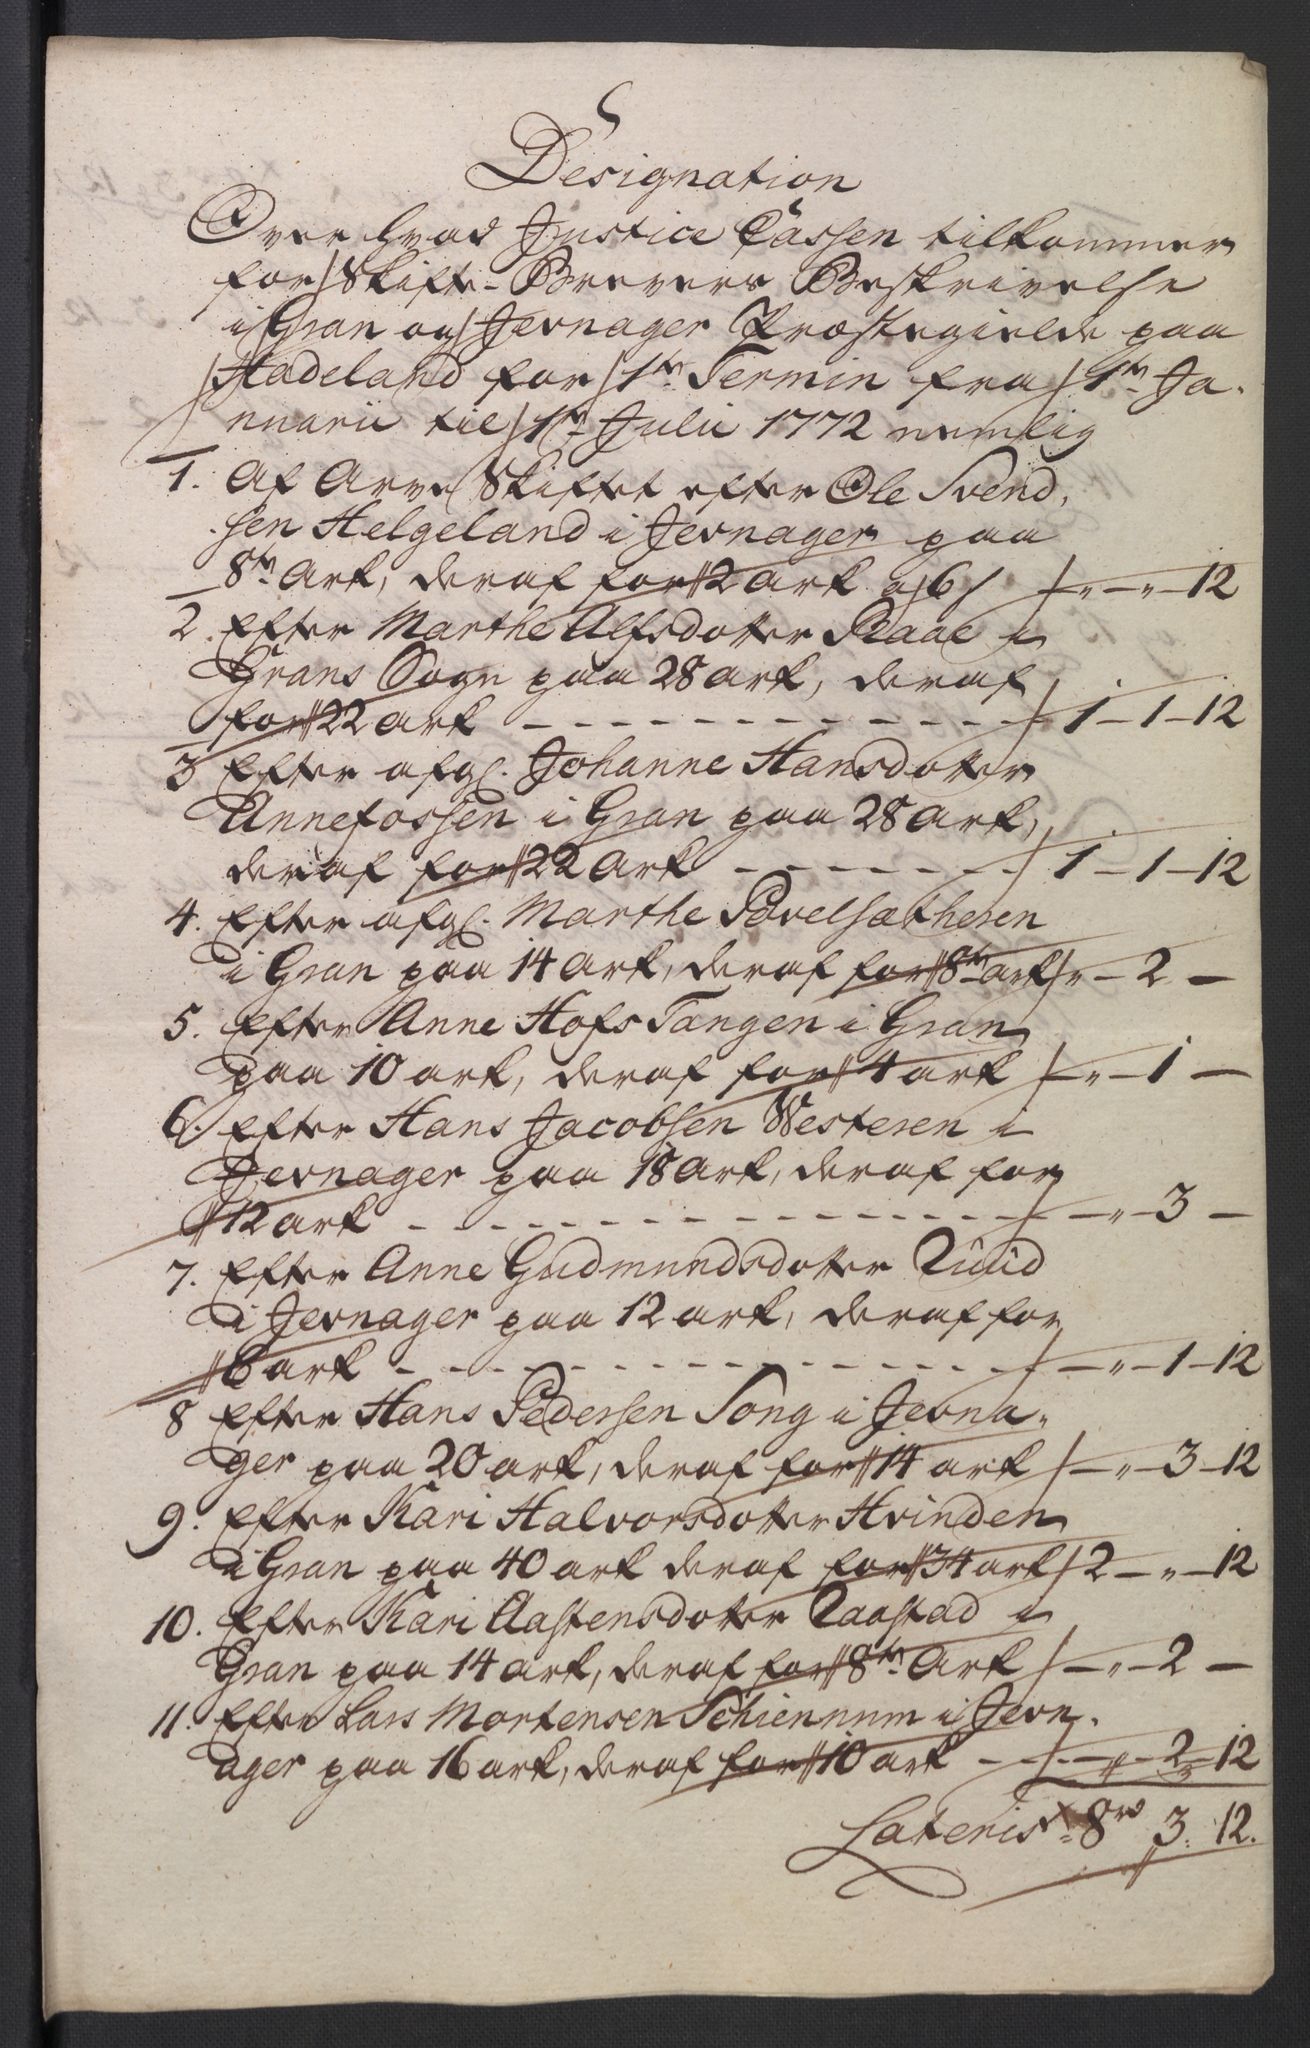 Designation
Over hvad Justice Cassen tilkommer
for Skifte-Brevers Beskrivelse
i Gran og Jevnager Præstegielde paa
Hadeland for 1ste Termin fra 1ste Ja-
nuarii til 1ste Julii 1772 nemlig
1. Af Arve Skiftet efter Ole Svend-
sen Helgeland i Jevnager paa
8te Ark, deraf for 2 Ark a 6 s „ — „ — 12
2. Efter Marthe Alfsdotter Raae i
Grans Sogn paa 28 Ark, deraf
for 22 Ark - - - - - - - 1 — 1 — 12
3 Efter afgl. Johanne Hansdotter
Annefossen i Gran paa 28 Ark,
deraf for 22 Ark - - - - - - 1 — 1 — 12
4. Efter afgl. Marthe Povelsætheren
i Gran paa 14 Ark, deraf for 8te ark „ — 2 —
5. Efter Anne Hofs Tangen i Gran
paa 10 ark, deraf for 4 ark — „ — 1 —
6. Efter Hans Jacobsen Westeren i
Jevnager paa 18 Ark, deraf for
12 ark - - - - - - - - — „ — 3 —
7. Efter Anne Gudmundsdotter Ruud
i Jevnager paa 12 ark, deraf for
6 ark - - - - - - - - — „ — 1 — 12
8 Efter Hans Pedersen Song i Jevna-
ger paa 20 ark, deraf for 14 ark — „ — 3 — 12
9. Efter Kari Halvorsdotter Hvinden
i Gran paa 40 ark deraf for 34 ark 2 — „ — 12
10. Efter Kari Aastensdotter Raastad i
Gran paa 14 ark, deraf for 8te Ark — „ — 2 —
11. Efter Lars Mortensen Schiennum i Jevn-
ager paa 16 ark, deraf for 10 ark - - — „ — 2 — 12
Lateris 8 rd 3. 12.